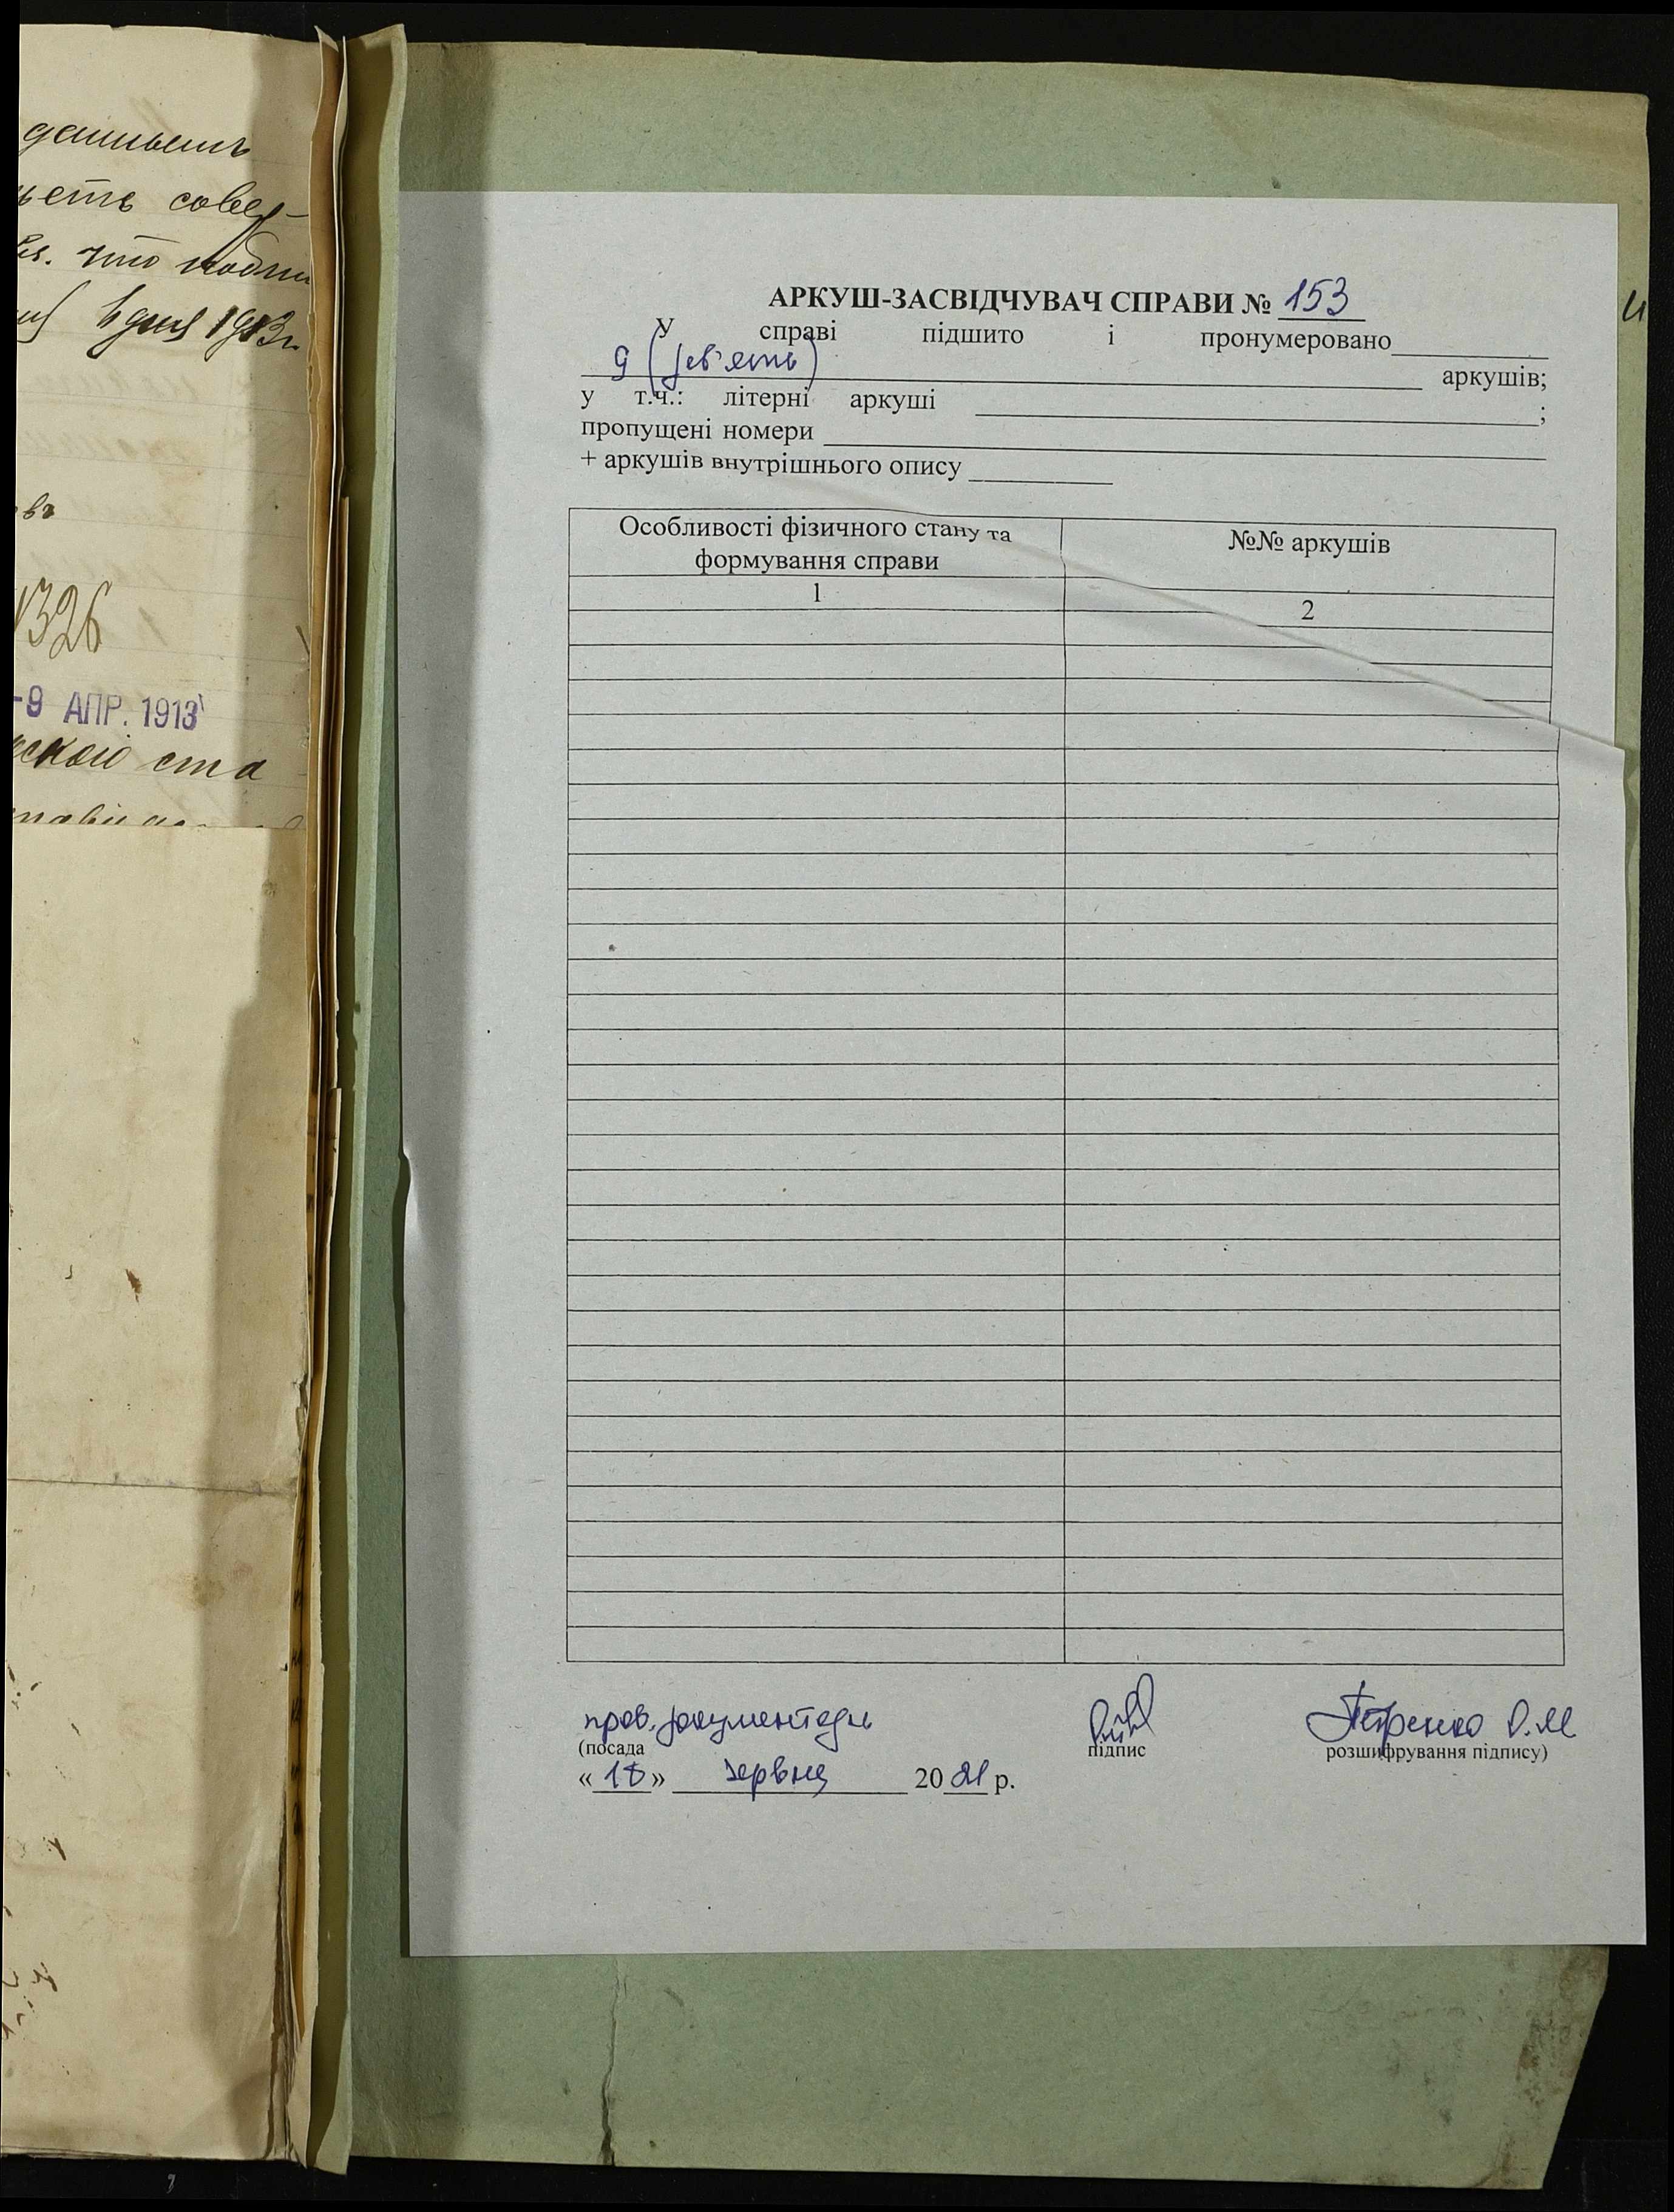 данным
совер-
что
1913 г.
1326
-9 АПР. 1913
ского ста
АРКУШ-ЗАСВІДЧУВАЧ СПРАВИ № 153
У справі підшито і пронумеровано
9 (дев'ять) аркушів;
у т.ч.: літерні аркуші ;
пропущені номери
+ аркушів внутрішнього опису
Особливості фізичного стану та формування справи
№№ аркушів
1
2
пров. документозн
Петренко О.М
(посада
підпис
розшифрування підпису)
« 18 » червня 20 21 р.